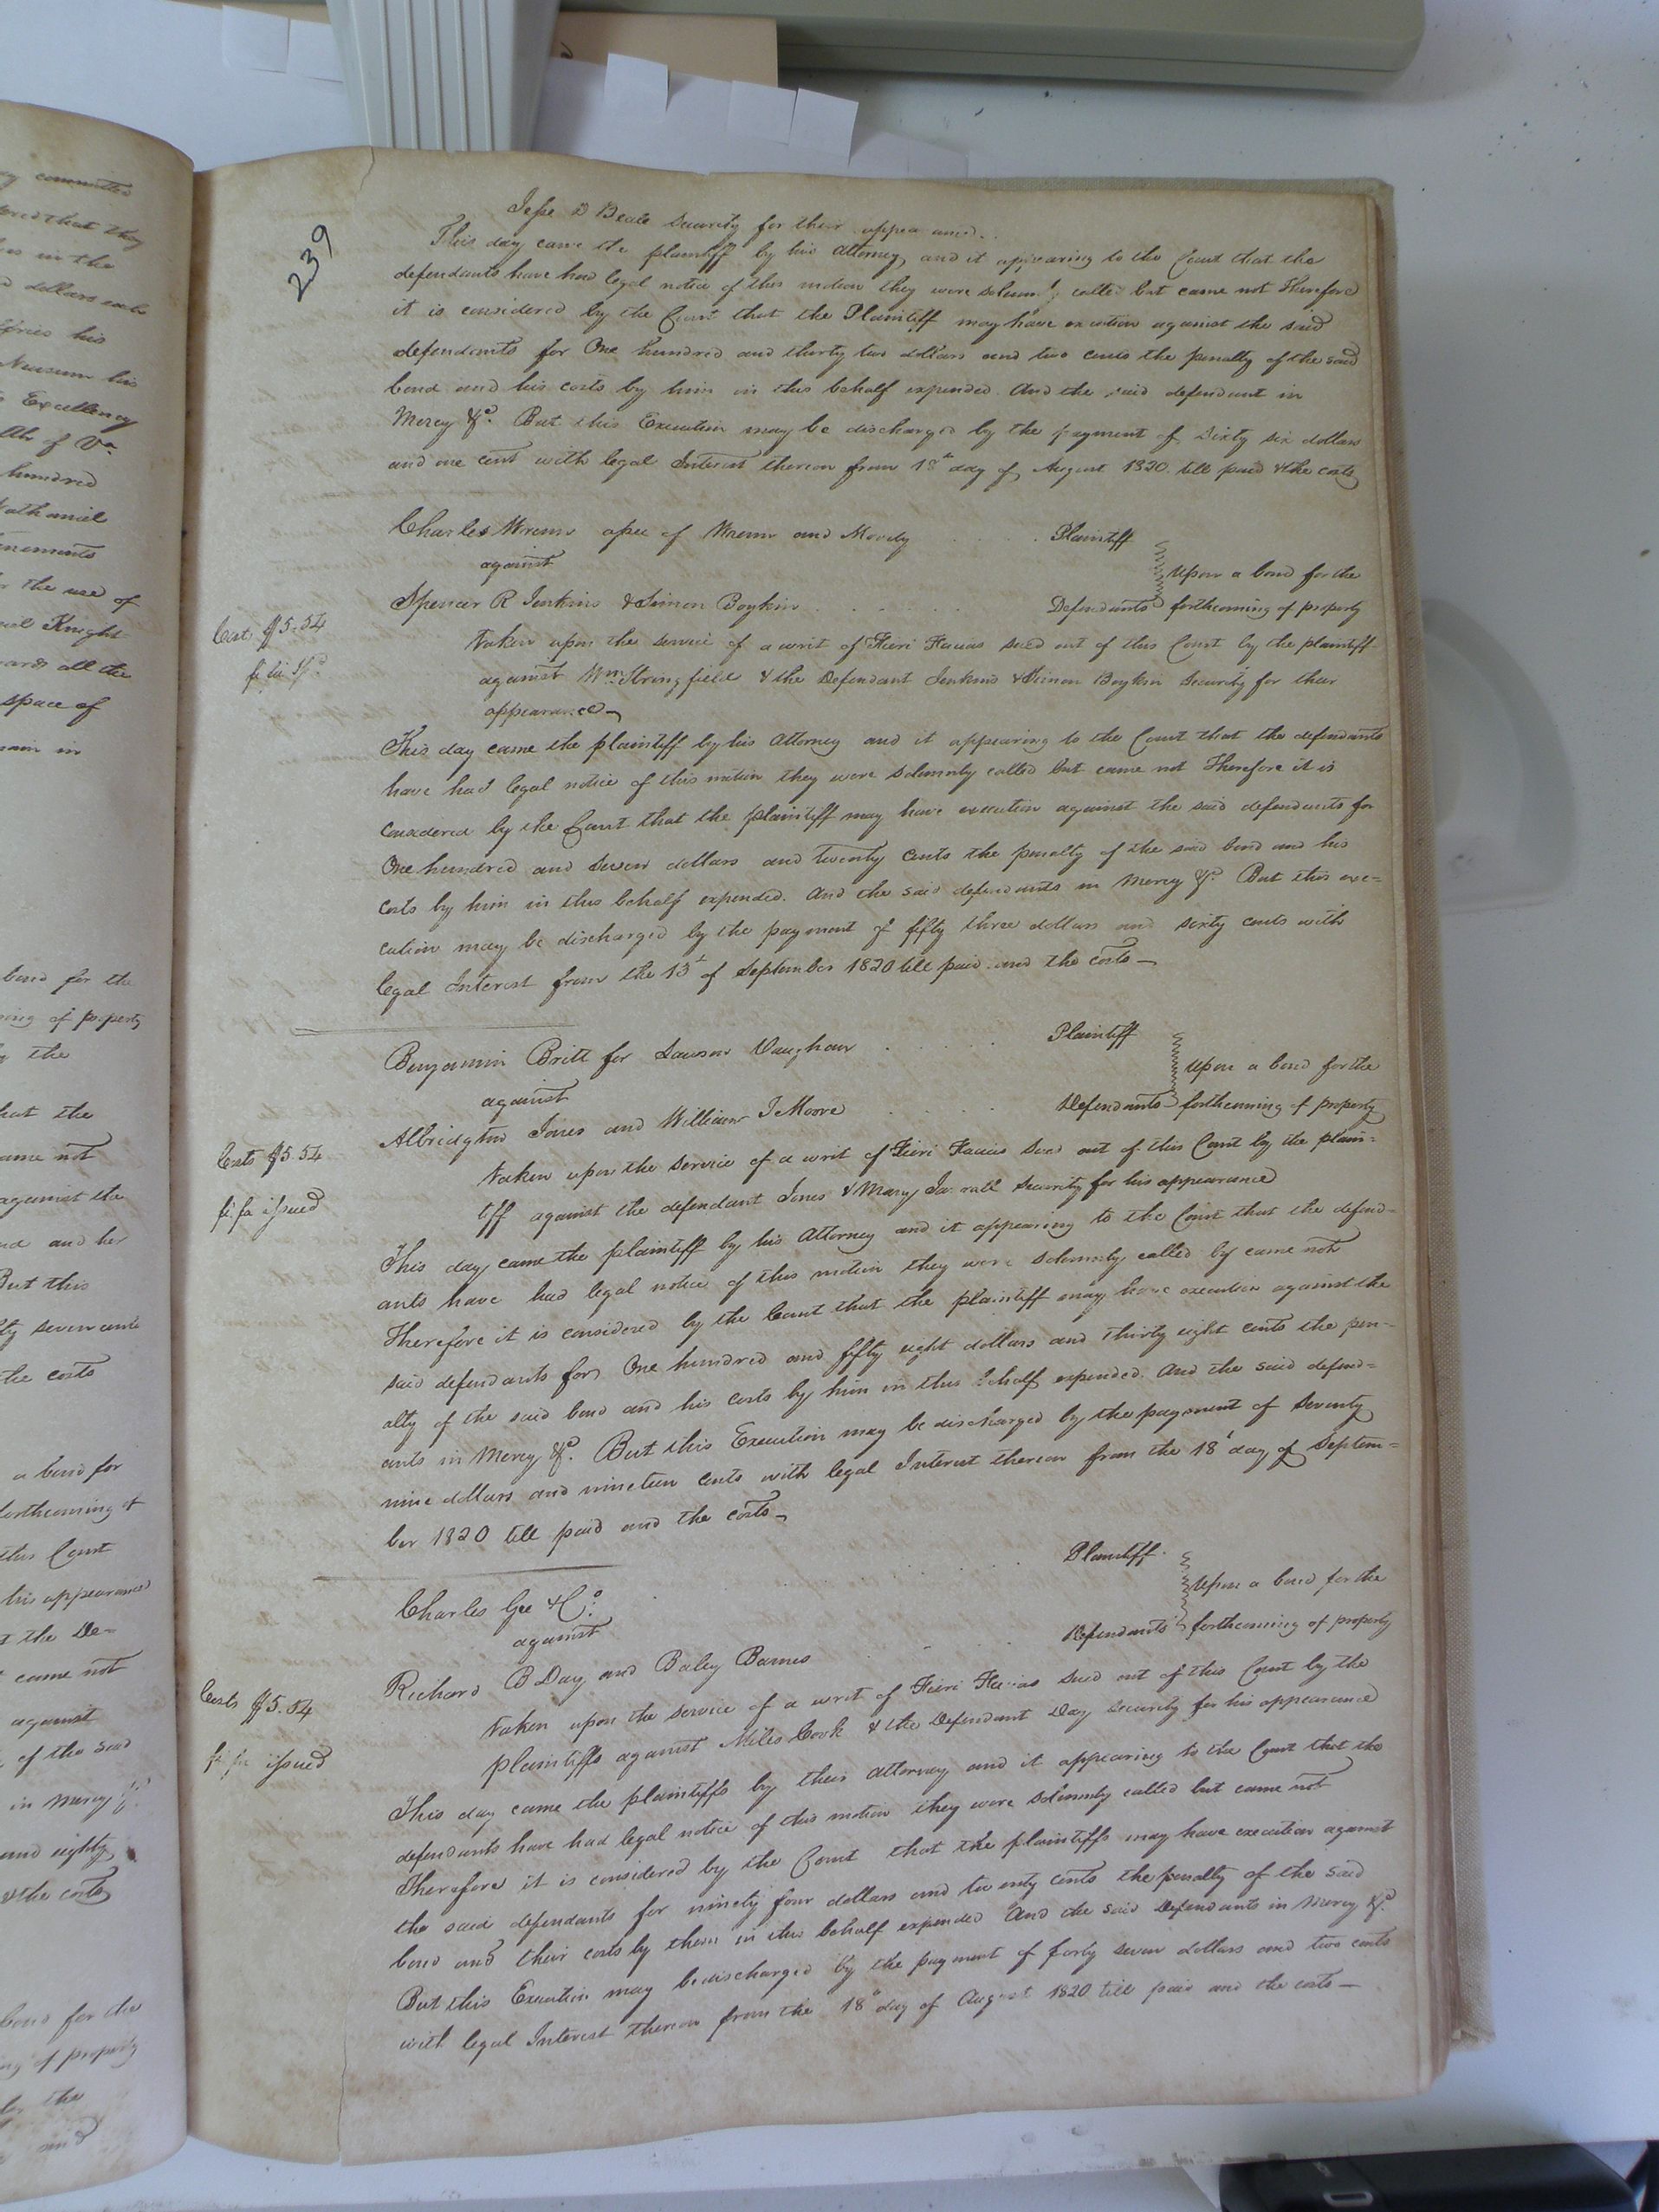 239
Jesse D Beale security for their appearance.
This day came the plaintiff by his attorney, and it appearing to the Court that the
defendants have had legal notice of this motion they were solemnly called but came not Therefore
it is considered by the Court that the Plaintiff may have execution against the said
defendants for One hundred and thirty two dollars and two cents the penalty of the said
bond and his costs by him in this behalf expended And the said defendant in
Mercy &c. But this Execution may be discharged by the payment of Sixty six dollars
and one cent with legal Interest thereon from 18th day of August 1820 till paid & the costs
Charles Wrenn assee of Wrenn and Moody . . . . Plaintiff
against
Upon a bond for the
Spencer R Jenkins & Simon Boykin . . . . . Defendants forthcoming of property
Costs $5.54
fi fa issd
taken upon the service of a writ of Fieri Facias sued out of this Court by the plaintiff
against Wm Stringfield & the Defendant Jenkins & Simon Boykin Security for their
appearance
This day came the plaintiff by his attorney and it appearing to the Court that the defendants
have had legal notice of this motion they were solemnly called but came not Therefore it is
considered by the Court that the plaintiff may have execution against the said defendants for
One hundred and seven dollars and twenty cents the penalty of the said bond and his
costs by him in this behalf expended. And the said defendants in Mercy &c. But this exe=
cution may be discharged by the payment of fifty three dollars and sixty cents with
legal Interest from the of September 1820 till paid and the costs—
Benjamin Britt for Lawson Vaughan . . . . . Plaintiff
against
Upon a bond for the
Albridgton Jones and William J Moore . . . . Defendants forthcoming of property
Costs $5.54
fi fa issued
taken upon the service of a writ of Fieri Facias sued out of this Court by the plain=
tiff against the defendant Jones & Mary Jarratt Security for his appearance
This day came the plaintiff by his Attorney and it appearing to the Court that the defend=
ants have had legal notice of this motion they were solemnly called by came not
Therefore it is considered by the Court that the plaintiff may have execution against the
said defendants for One hundred and fifty eight dollars and thirty eight cents the pen=
alty of the said bond and his costs by him in this behalf expended. And the said defend=
ants in Mercy &c. But this Execution may be discharged by the payment of Seventy
nine dollars and nineteen cents with legal Interest thereon from the 18t day of Septem=
ber 1820 till paid and the costs—
Charles Gee & Co. . . . . . Plaintiff
against
Upon a bond for the
Richard B Day and Baley Barnes . . . Defendants forthcoming of property
Costs $5.54
fi fa issued
taken upon the service of a writ of Fieri Facias sued out of this Court by the
plaintiffs against Miles Cook & the Defendant Day Security for his appearance
This day came the plaintiffs by their attorney and it appearing to the Court that the
defendants have had legal notice of this motion they were solemnly called but came not
Therefore it is considered by the Court that the plaintiffs may have execution against
the said defendants for ninety four dollars and twenty cents the penalty of the said
bond and their costs by them in this behalf expended And the said Defendants in Mercy &c.
But this Execution may be discharged by the payment of forty seven dollars and two cents
with legal Interest thereon from the 18th day of August 1820 till paid and the costs—